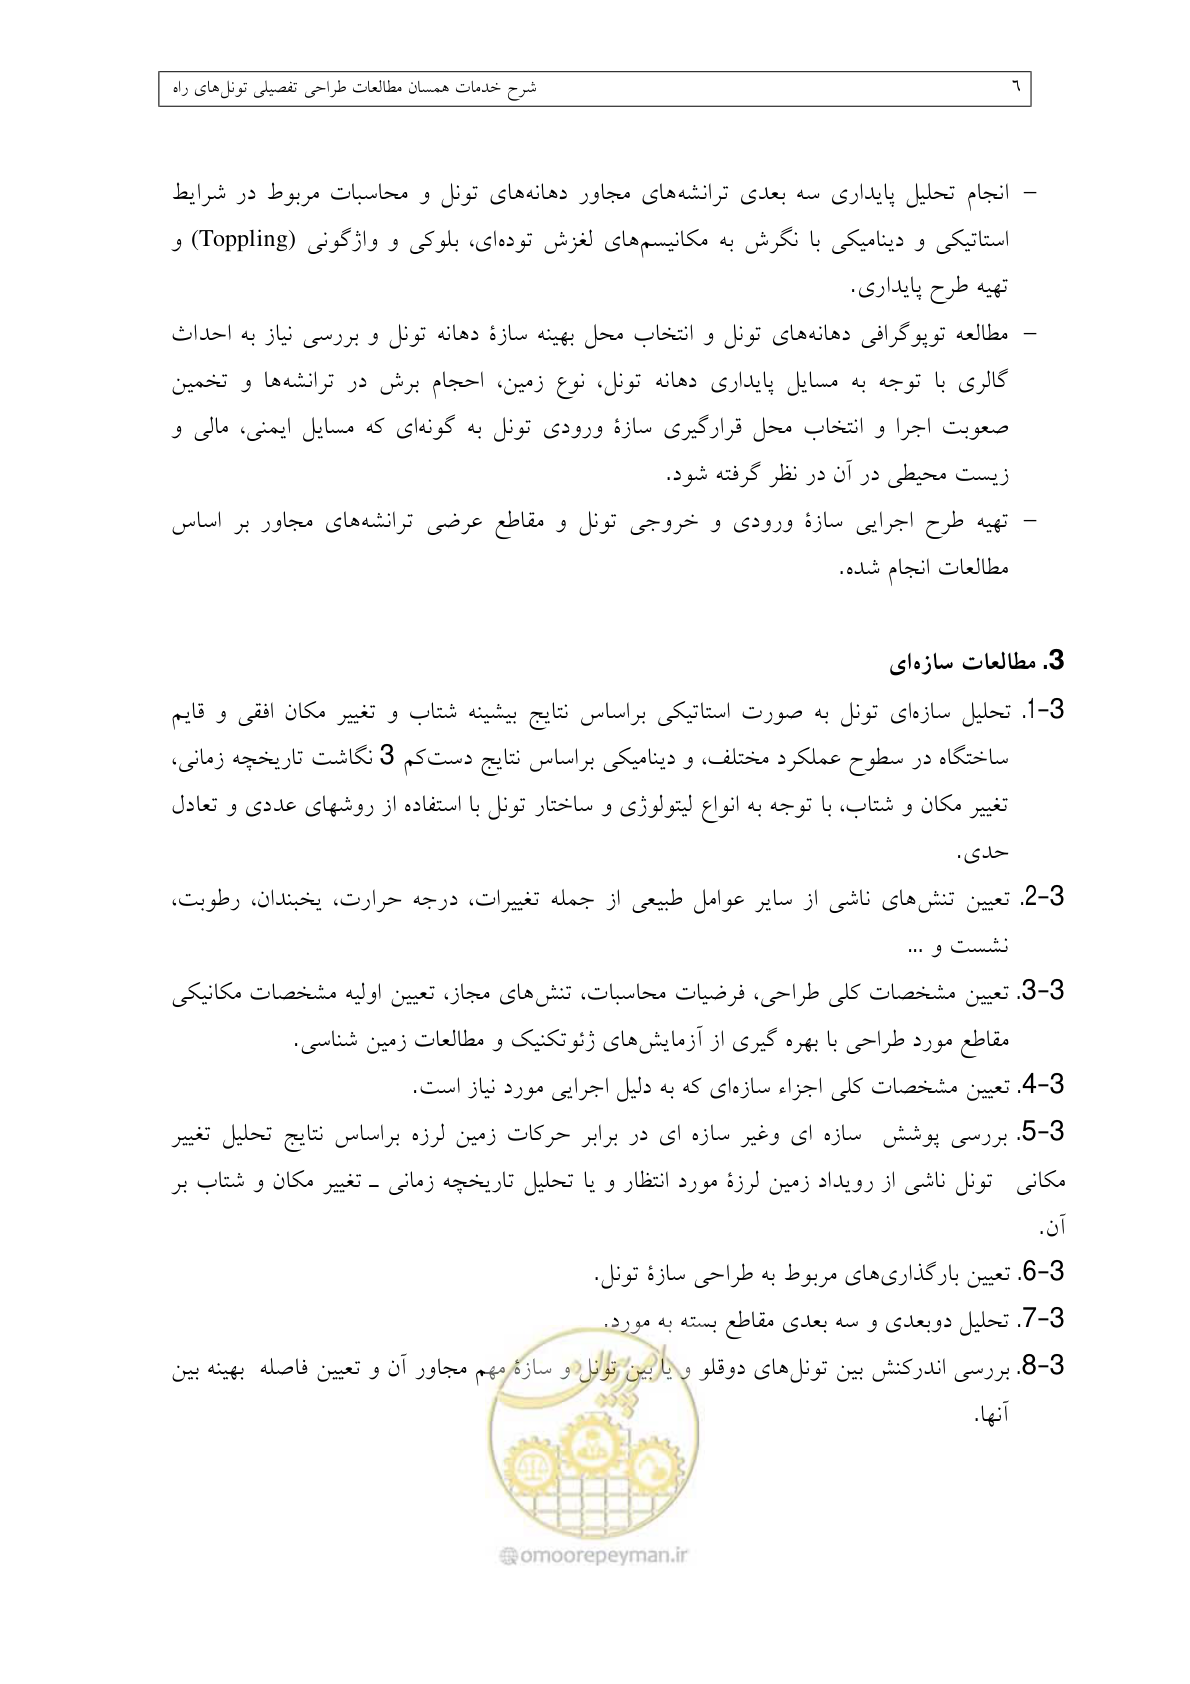 ۶ شرح خدمات همسان مطالعات طراحی تفصیلی تونل‌های راه
– انجام تحلیل پایداری سه بعدی ترانشه‌های مجاور دهانه‌های تونل و محاسبات مربوط در شرایط
استاتیکی و دینامیکی با نگرش به مکانیسم‌های لغزش توده‌ای، بلوکی و واژگونی (Toppling) و
تهیه طرح پایداری.
– مطالعه توپوگرافی دهانه‌های تونل و انتخاب محل بهینه سازۀ دهانه تونل و بررسی نیاز به احداث
گالری با توجه به مسایل پایداری دهانه تونل، نوع زمین، احجام برش در ترانشه‌ها و تخمین
صعوبت اجرا و انتخاب محل قرارگیری سازۀ ورودی تونل به گونه‌ای که مسایل ایمنی، مالی و
زیست محیطی در آن در نظر گرفته شود.
– تهیه طرح اجرایی سازۀ ورودی و خروجی تونل و مقاطع عرضی ترانشه‌های مجاور بر اساس
مطالعات انجام شده.
3. مطالعات سازه‌ای
3-1. تحلیل سازه‌ای تونل به صورت استاتیکی براساس نتایج بیشینه شتاب و تغییر مکان افقی و قایم
ساختگاه در سطوح عملکرد مختلف، و دینامیکی براساس نتایج دست‌کم 3 نگاشت تاریخچه زمانی،
تغییر مکان و شتاب، با توجه به انواع لیتولوژی و ساختار تونل با استفاده از روشهای عددی و تعادل
حدی.
3-2. تعیین تنش‌های ناشی از سایر عوامل طبیعی از جمله تغییرات، درجه حرارت، یخبندان، رطوبت،
نشست و ...
3-3. تعیین مشخصات کلی طراحی، فرضیات محاسبات، تنش‌های مجاز، تعیین اولیه مشخصات مکانیکی
مقاطع مورد طراحی با بهره گیری از آزمایش‌های ژئوتکنیک و مطالعات زمین شناسی.
3-4. تعیین مشخصات کلی اجزاء سازه‌ای که به دلیل اجرایی مورد نیاز است.
3-5. بررسی پوشش سازه ای وغیر سازه ای در برابر حرکات زمین لرزه براساس نتایج تحلیل تغییر
مکانی تونل ناشی از رویداد زمین لرزۀ مورد انتظار و یا تحلیل تاریخچه زمانی ـ تغییر مکان و شتاب بر
آن.
3-6. تعیین بارگذاری‌های مربوط به طراحی سازۀ تونل.
3-7. تحلیل دوبعدی و سه بعدی مقاطع بسته به مورد.
3-8. بررسی اندرکنش بین تونل‌های دوقلو و یا بین تونل و سازۀ مهم مجاور آن و تعیین فاصله بهینه بین
آنها.
امور پیمان
omoorepeyman.ir